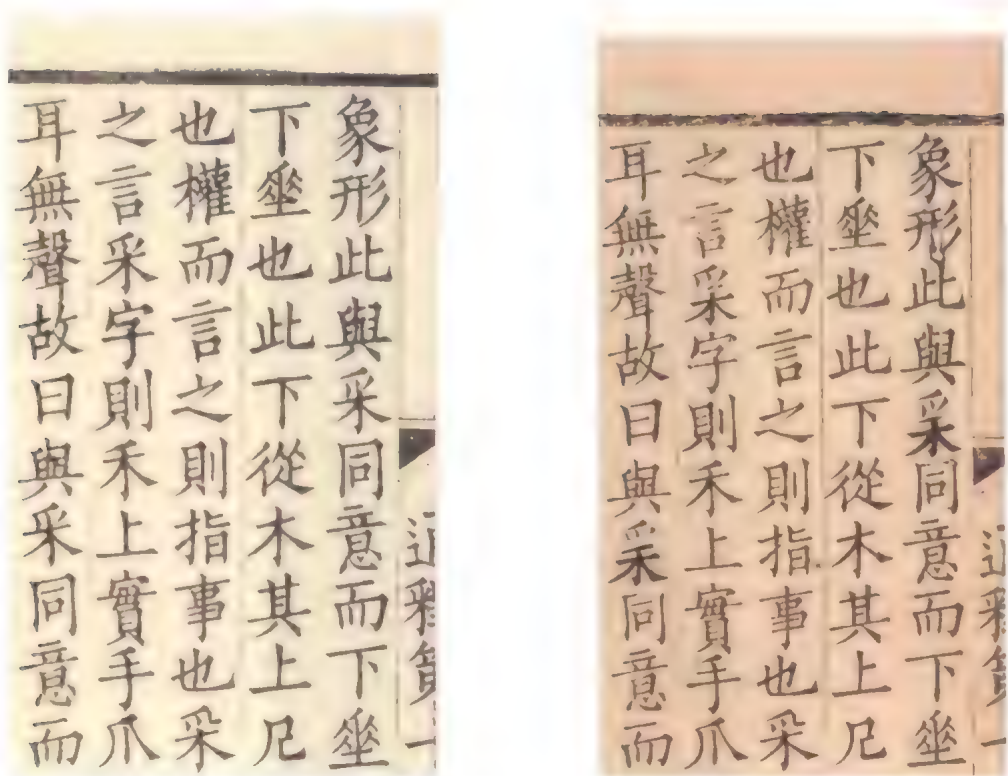 象形此與采同意而下垂
下垂也此下從木其上
也權而言之則指事也采
之言采字則禾上實手爪
耳無聲故曰與采同意而
象形此與𥝩同意而下垂
下垂也此下從木其上
也權而言之則指事也采
之言𥝩字則禾上實手爪
耳無聲故曰與𥝩同意而